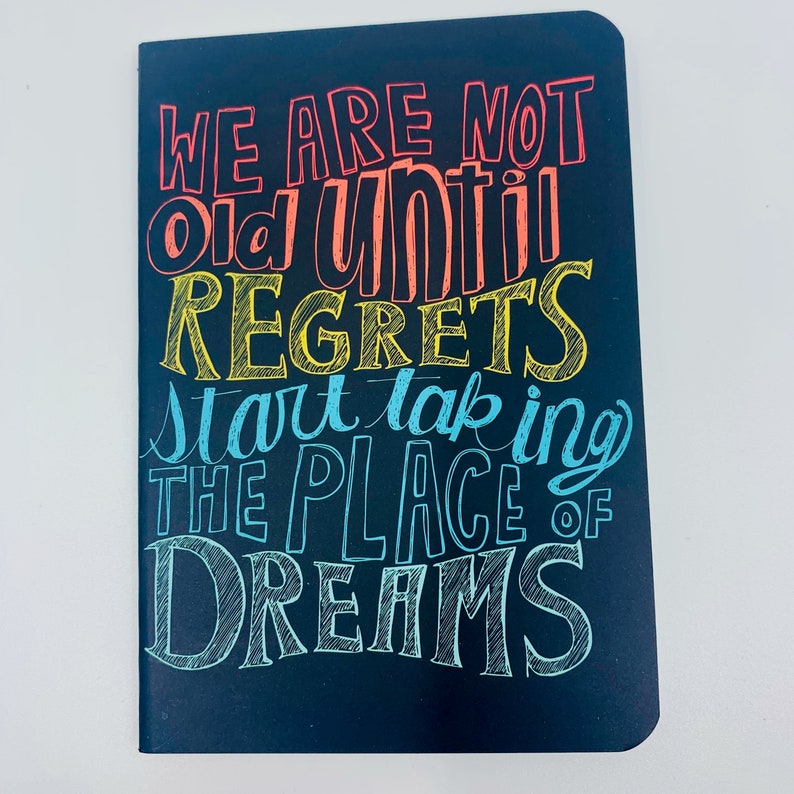 WE ARE NOT
Old until
REGRETS
start taking
THE PLACE OF
DREAMS